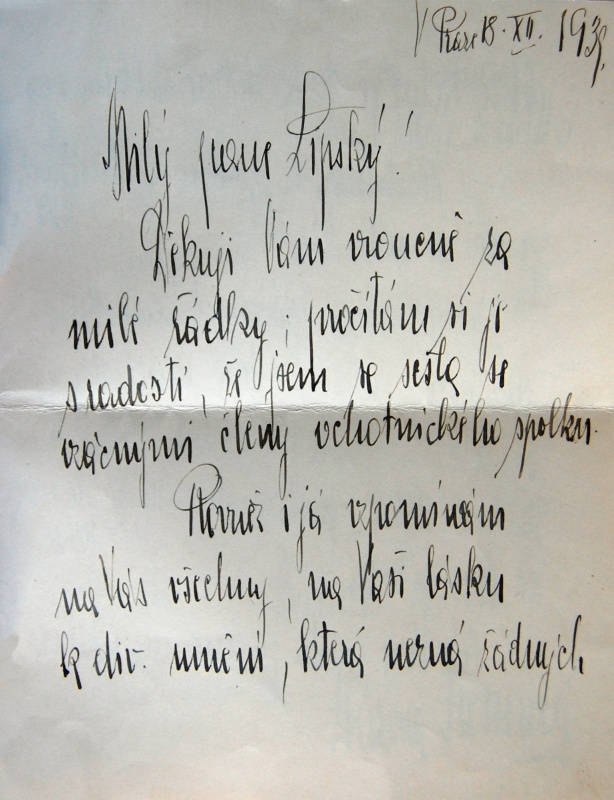 V Praze 18. XII. 1935.
Milý pane Lipský!
Děkuji Vám vroucně za
milé řádky; pročítám si je
s radostí, že jsem se sešla se
vzácnými členy ochotnického spolku.
Rovněž i já vzpomínám
na Vás všechny, na Vaši lásku
k div. umění, která nezná žádných